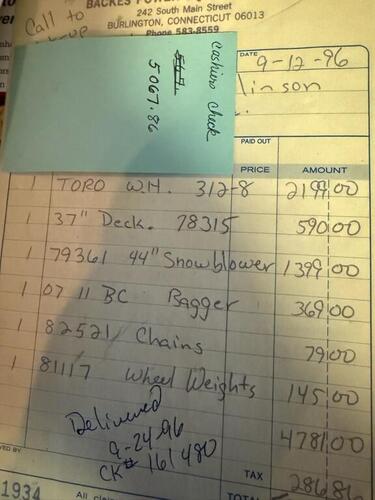 Call to
BACKES POWER
242 South Main Street
BURLINGTON, CONNECTICUT 06013
Phone 583-8559
cashiers check
5067.86
DATE 9-12-96
linson
PAID OUT
PRICE AMOUNT
1 TORO W.H. 312-8 2199.00
1 37" Deck. 78315 590.00
1 79361 44" Snowblower 1399.00
1 07 11 BC Bagger 369.00
1 82521 Chains 79.00
1 81117 Wheel Weights 145.00
4781.00
Delivered
9-24-96
CK# 161480
VED BY
TAX 286.86
1934 All clai
TOTAL